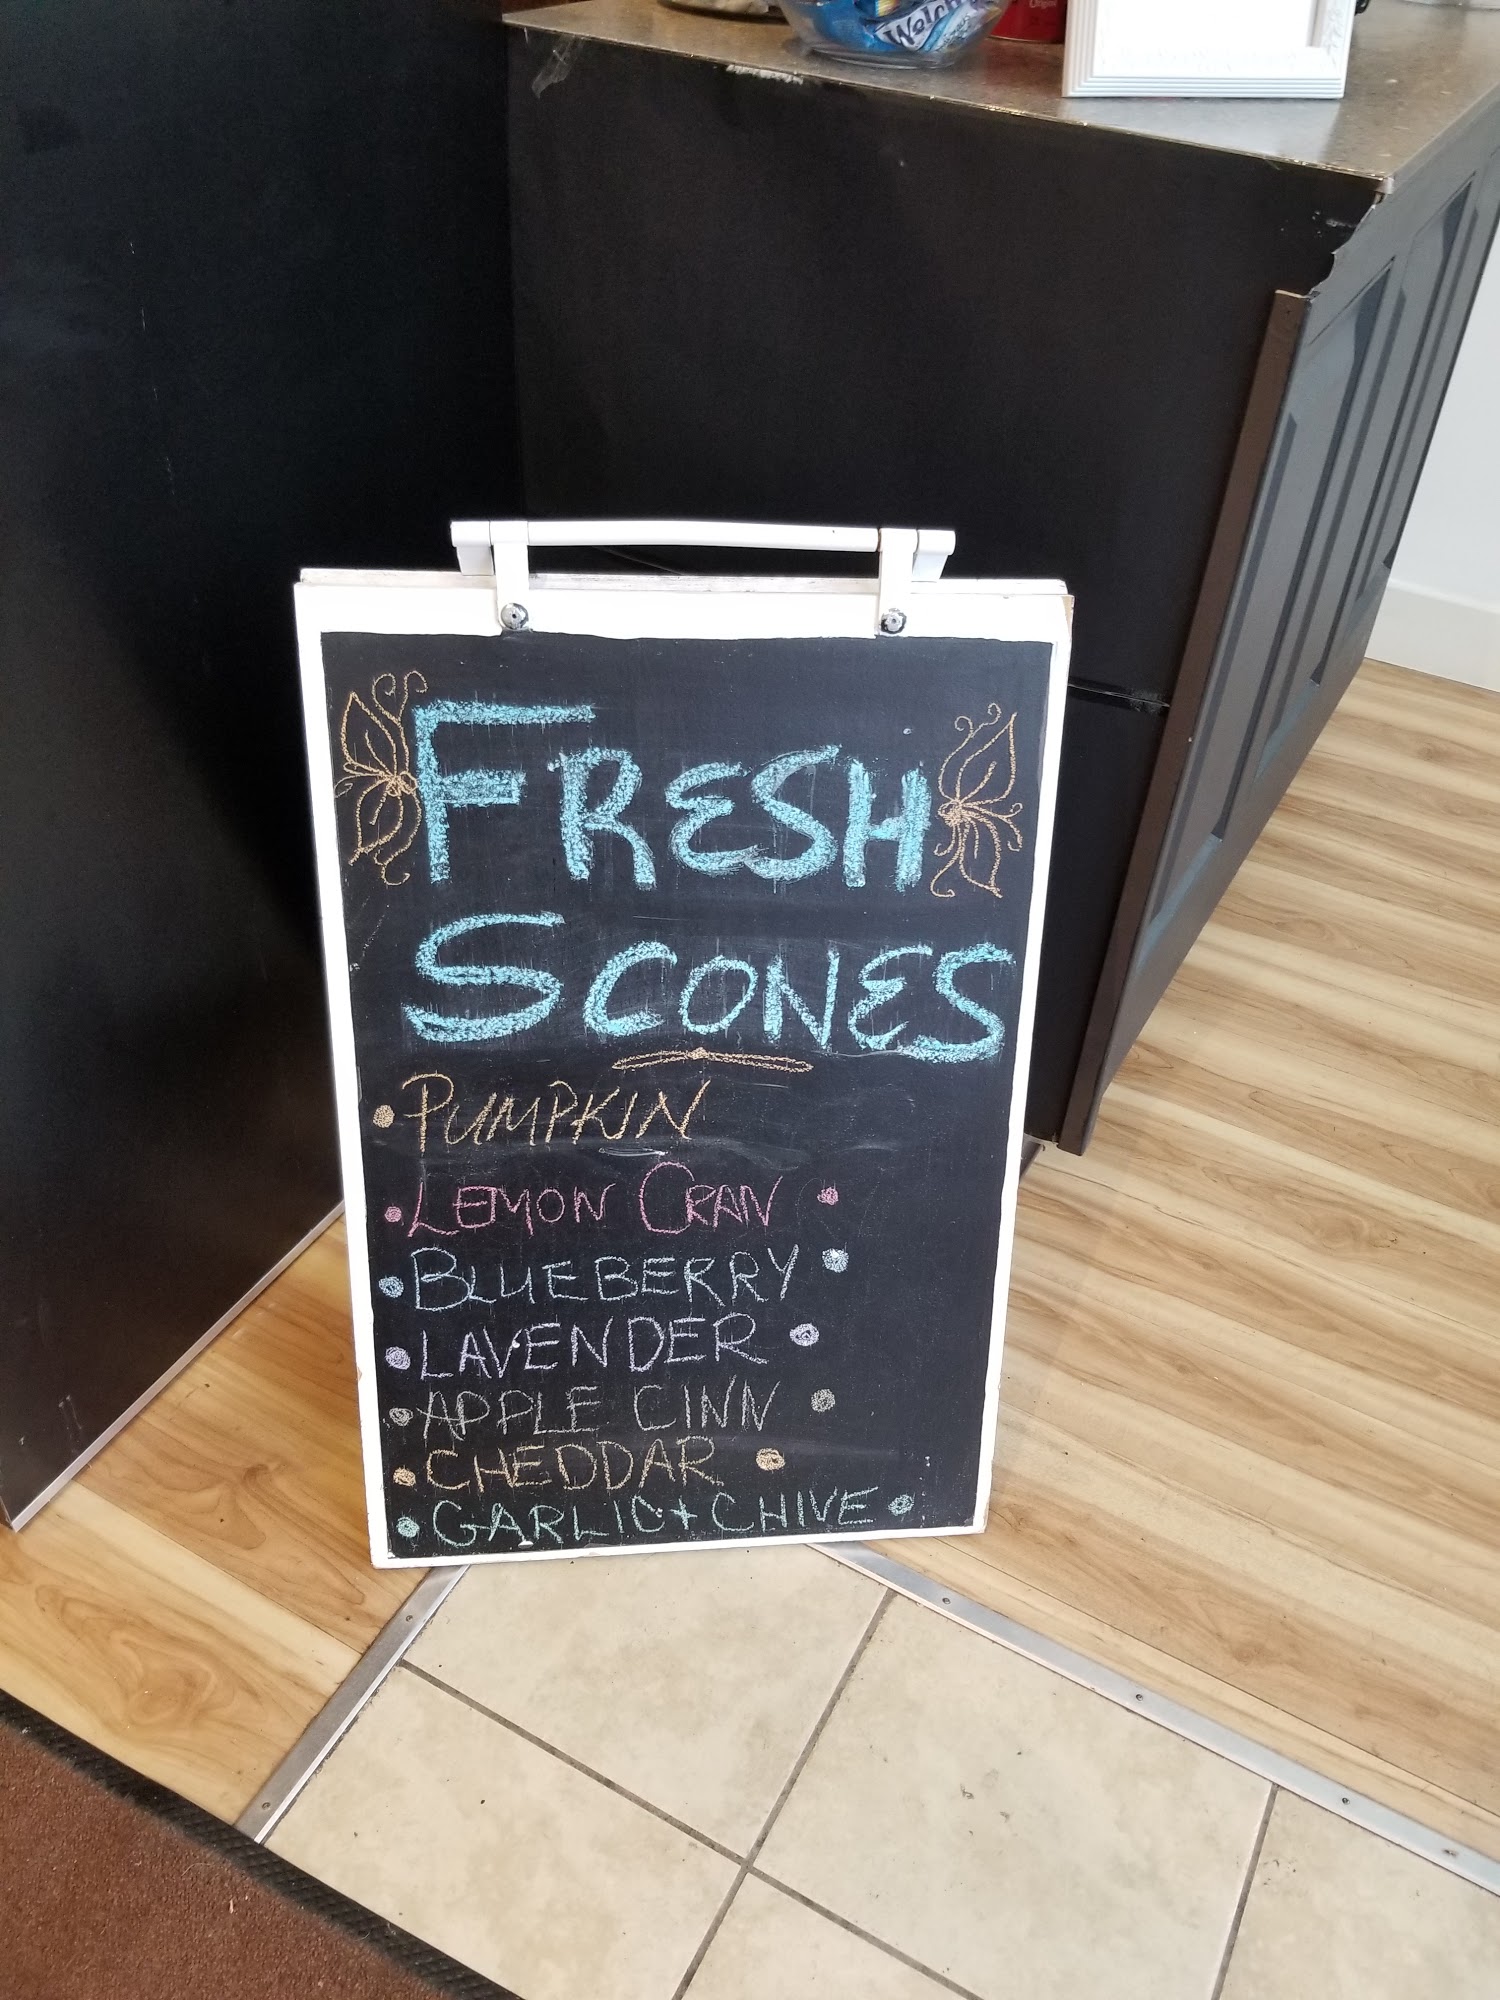 Welch
Original
FRESH
SCONES
• PUMPKIN
• LEMON CRAN •
• BLUEBERRY •
• LAVENDER •
• APPLE CINN •
• CHEDDAR •
• GARLIC + CHIVE •